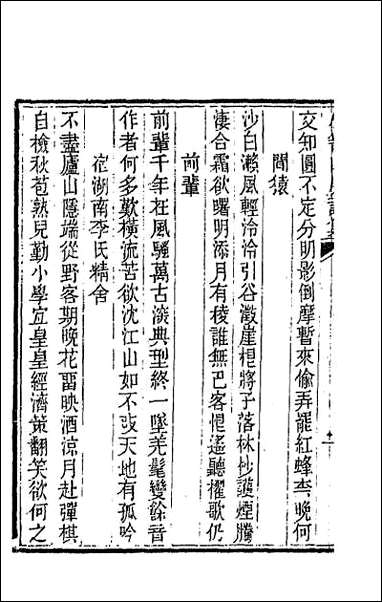 交知圓不定分明影倒摩暫來偷弄罷紅蜂李晚何
聞猿
沙白瀨風輕泠泠引谷澂崖棍將子落林杪護煙騰
淒合霜欲曙明添月有稜誰無巴客惧遙聽櫂歌仍
前輩
前輩千年枉風騷萬古滾典型終一墜羌髦變餘音
作者何多歎橫流苦欲沈江山如不或天地有孤吟
宿湖南李氏精舍
不盡廬山隱端從野客期晚花畱映酒涼月赴彈棋
自檢秋苞熟兒勤小學宜皇皇經濟策翻笑欲何之